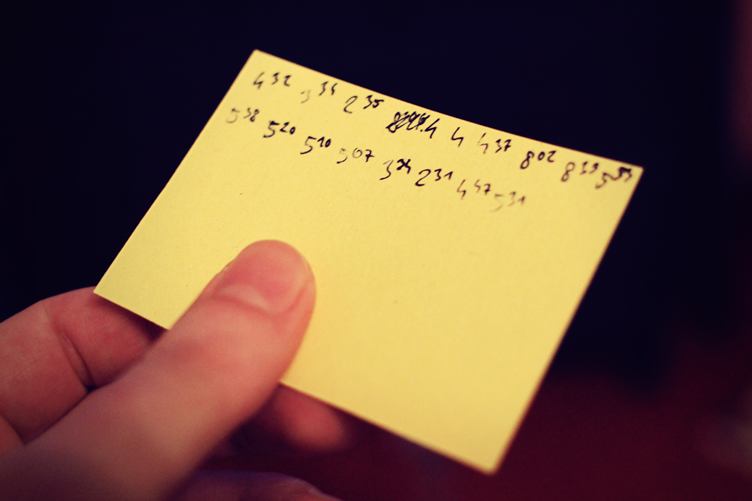 4³² 3³⁴ 2³⁵ 4 4 4³⁷ 8⁰² 8³⁵ 5⁵³
5³⁸ 5²⁰ 5¹⁰ 5⁰⁷ 3²⁴ 2³¹ 4⁴⁷ 5³¹